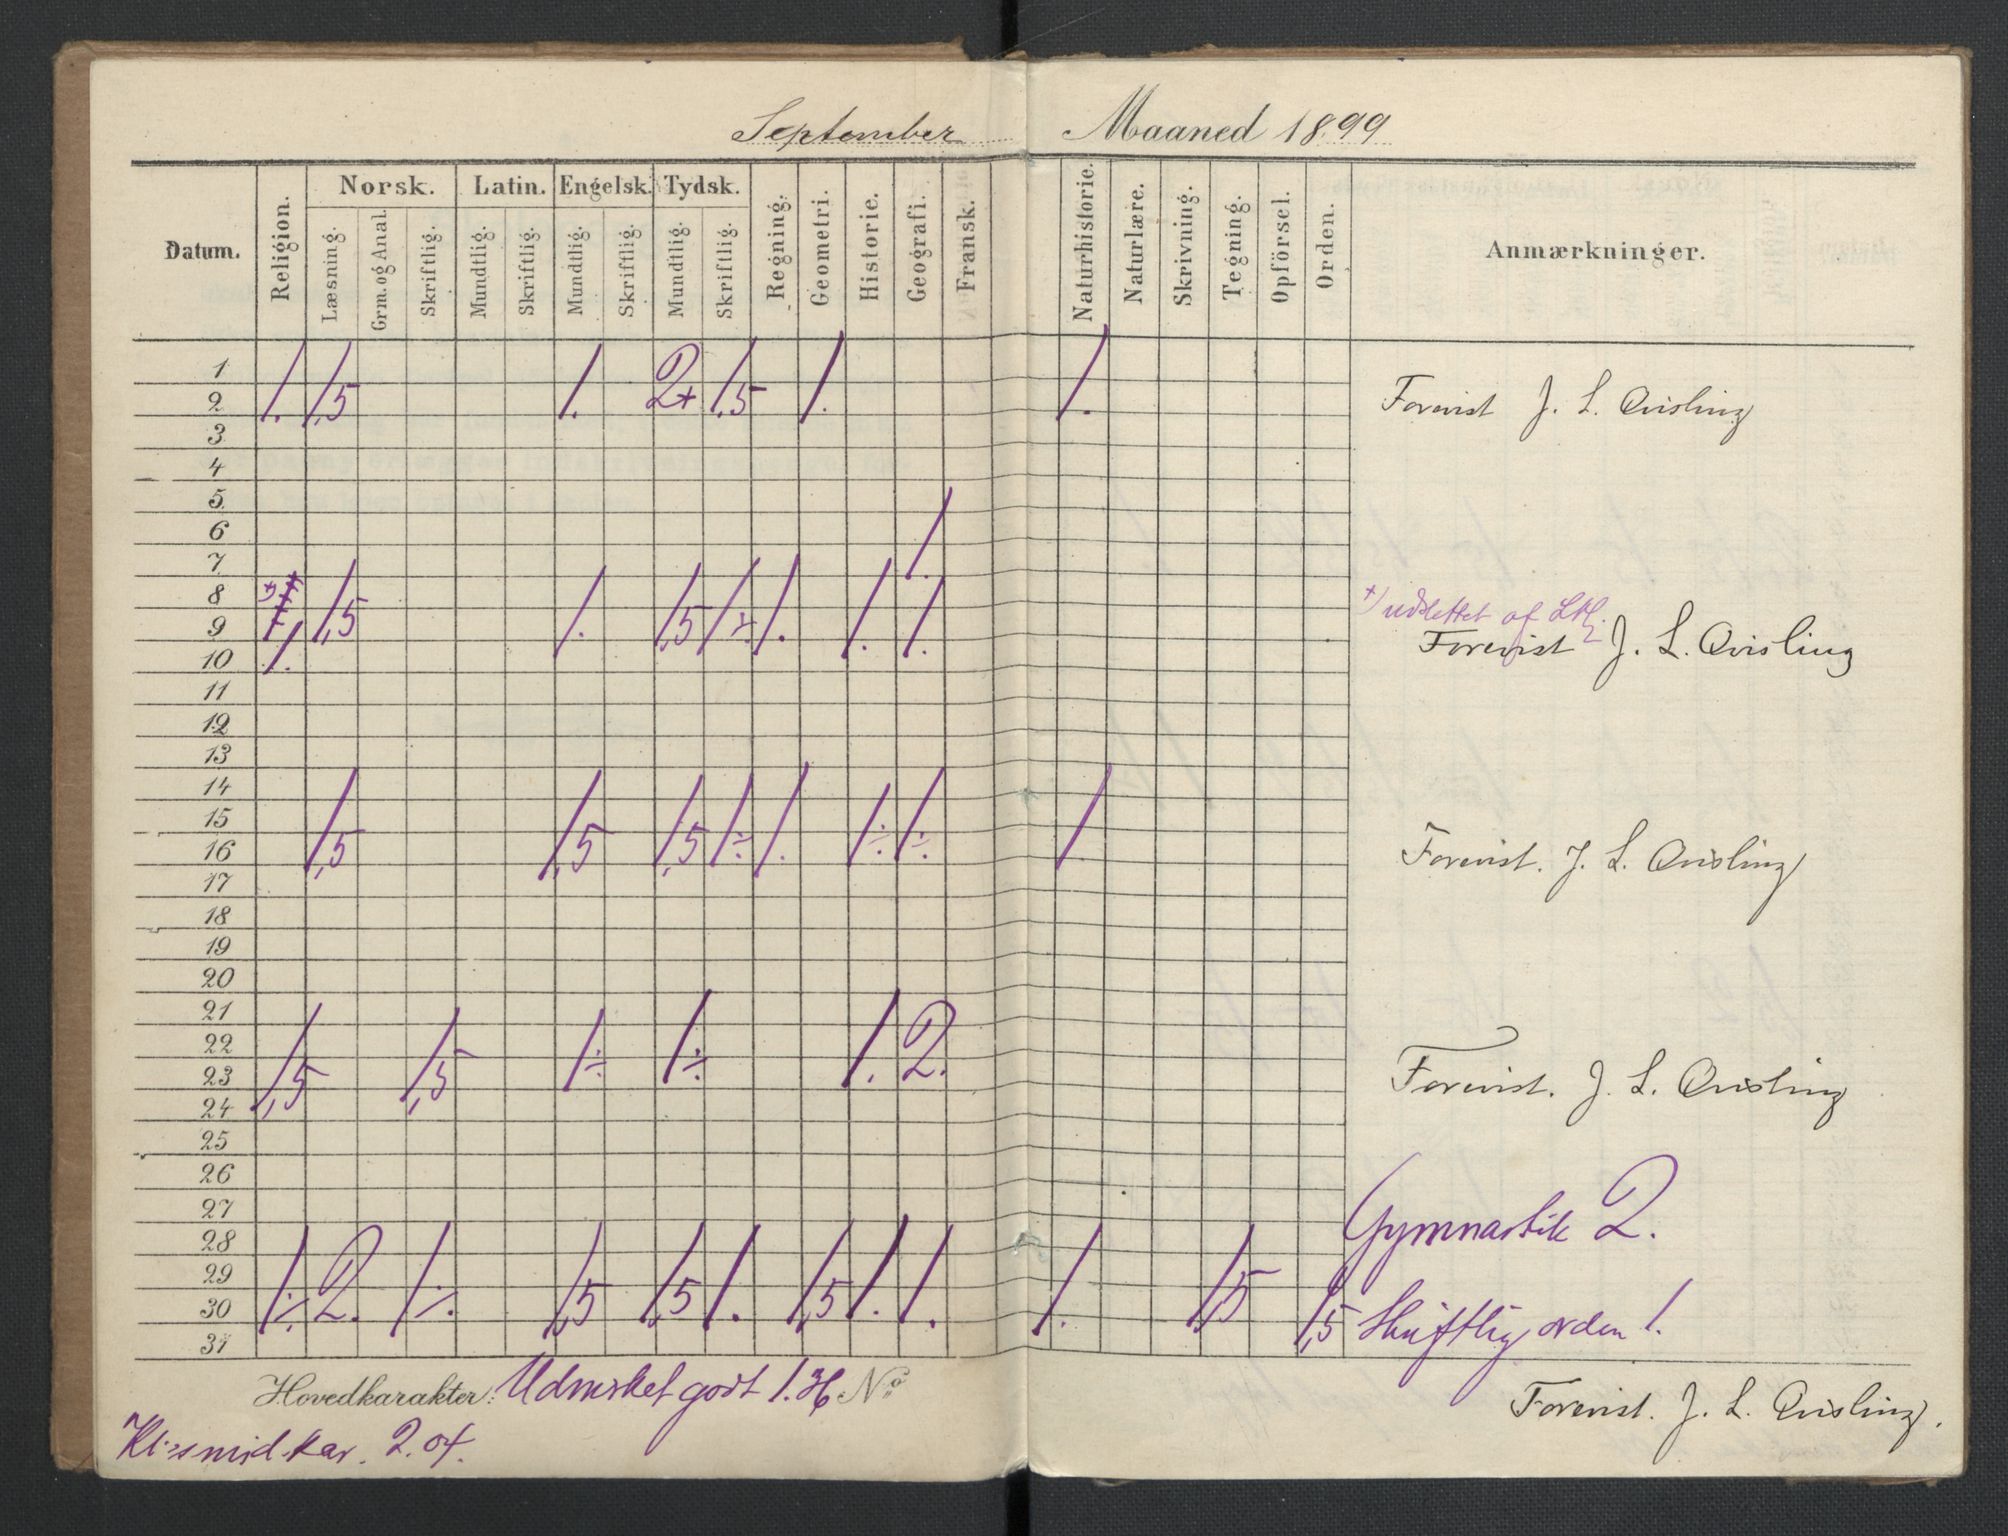 September Maaned 1899
Norsk. Latin. Engelsk. Tydsk.
Datum. Religion. Læsning. Grm. og Anal. Skriftlig. Mundtlig. Skriftlig. Mundtlig. Skriftlig. Mundtlig. Skriftlig. Regning. Geometri. Historie. Geografi. Fransk. Naturhistorie. Naturlære. Skrivning. Tegning. Opförsel. Orden. Anmærkninger.
1
2 1. 1,5 1. 2+ 1,5 1. 1. Forevist J. L. Qvisling
3
4
5
6
7 1.
8 +) +) udslettet af
9 1,5 1. 1,5 1÷ 1. 1. 1. Forevist J. L. Qvisling
10 1.
11
12
13
14
15
16 1,5 1,5 1,5 1÷ 1. 1÷ 1÷ 1 Forevist. J. L. Qvisling
17
18
19
20
21
22
23 1,5 1,5 1÷ 1÷ 1. 2. Forevist. J. L. Qvisling
24
25
26
27
28 Gymnastik 2.
29
30 1÷ 2. 1÷. 1,5 1,5 1. 1,5 1. 1. 1. 1,5 1,5 Skriftlig orden 1.
31
Hovedkarakter: Udmerket godt 1.36 No
Forevist. J. L. Qvisling.
Kl:smid.kar. 2.04.